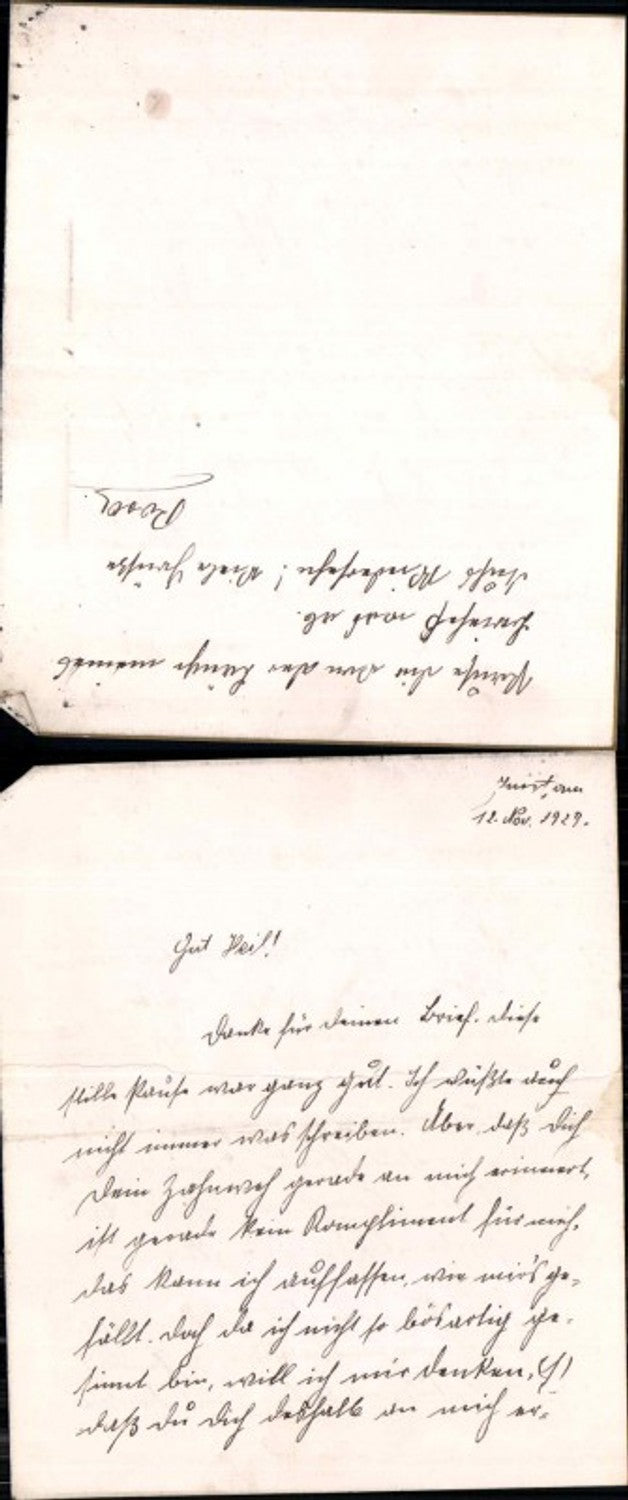 12. Nov. 1929.
Gut Heil!
Danke für Deinen Brief. Diese
stille Pause war ganz gut. Ich wüßte auch
nicht immer was schreiben. Aber, daß Dich
Dein Zahnweh gerade an mich erinnert,
ist gerade kein Kompliment für mich.
Das kann ich auffassen, wie mir's ge-
fällt. Doch da ich nicht so bösartig ge-
sinnt bin, will ich mir denken,
daß Du Dich deshalb an mich er-
meines
ab.
Wiedersehn! Viele Grüße
Rosa.